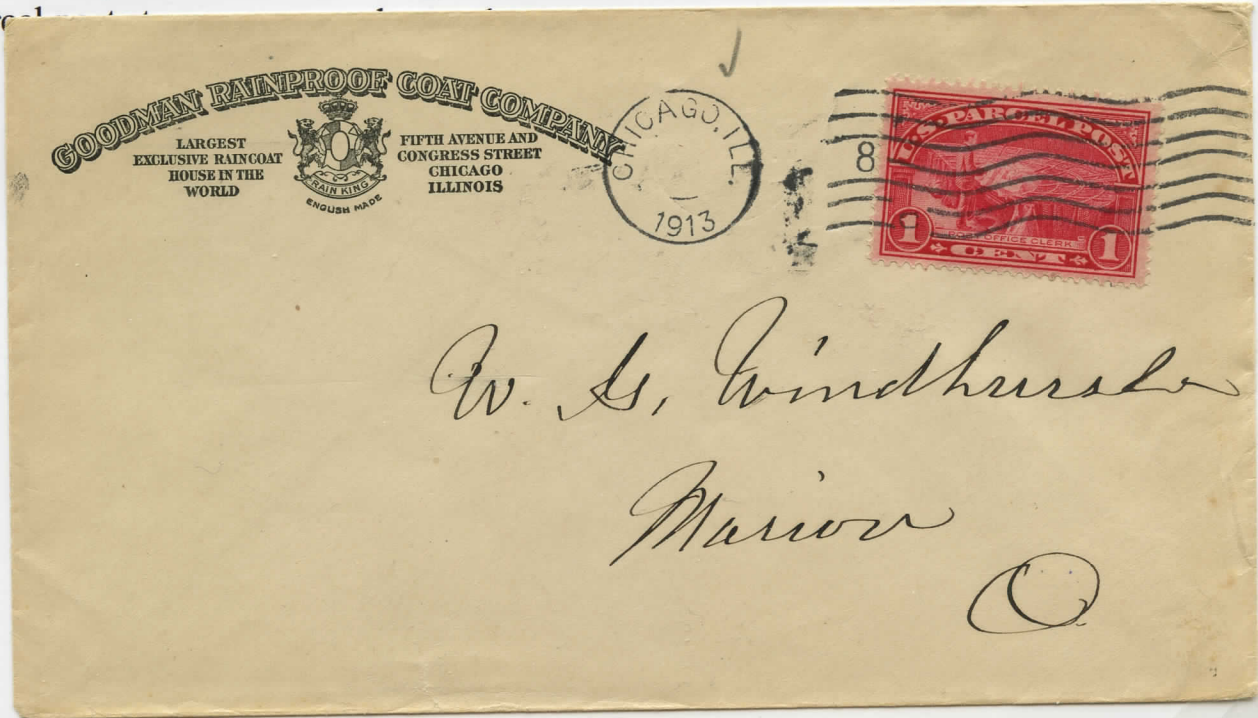 GOODMAN RAINPROOF COAT COMPANY
LARGEST
EXCLUSIVE RAINCOAT
HOUSE IN THE
WORLD
RAIN KING
ENGLISH MADE
FIFTH AVENUE AND
CONGRESS STREET
CHICAGO
ILLINOIS
CHICAGO, ILL.
1913
8
U.S. PARCEL POST
POST OFFICE CLERK
1 CENT 1
W. G, Windhurst
Marion
O.